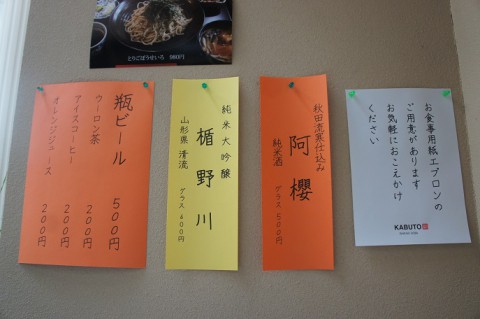 とりごぼうせいろ 980円
瓶ビール 500円
ウーロン茶 200円
アイスコーヒー 200円
オレンジジュース 200円
純米大吟醸
楯野川
山形県 清流 グラス 400円
秋田流寒仕込み
阿櫻
純米酒 グラス 500円
お食事用紙エプロンの
ご用意があります
お気軽におこえかけ
ください
KABUTO